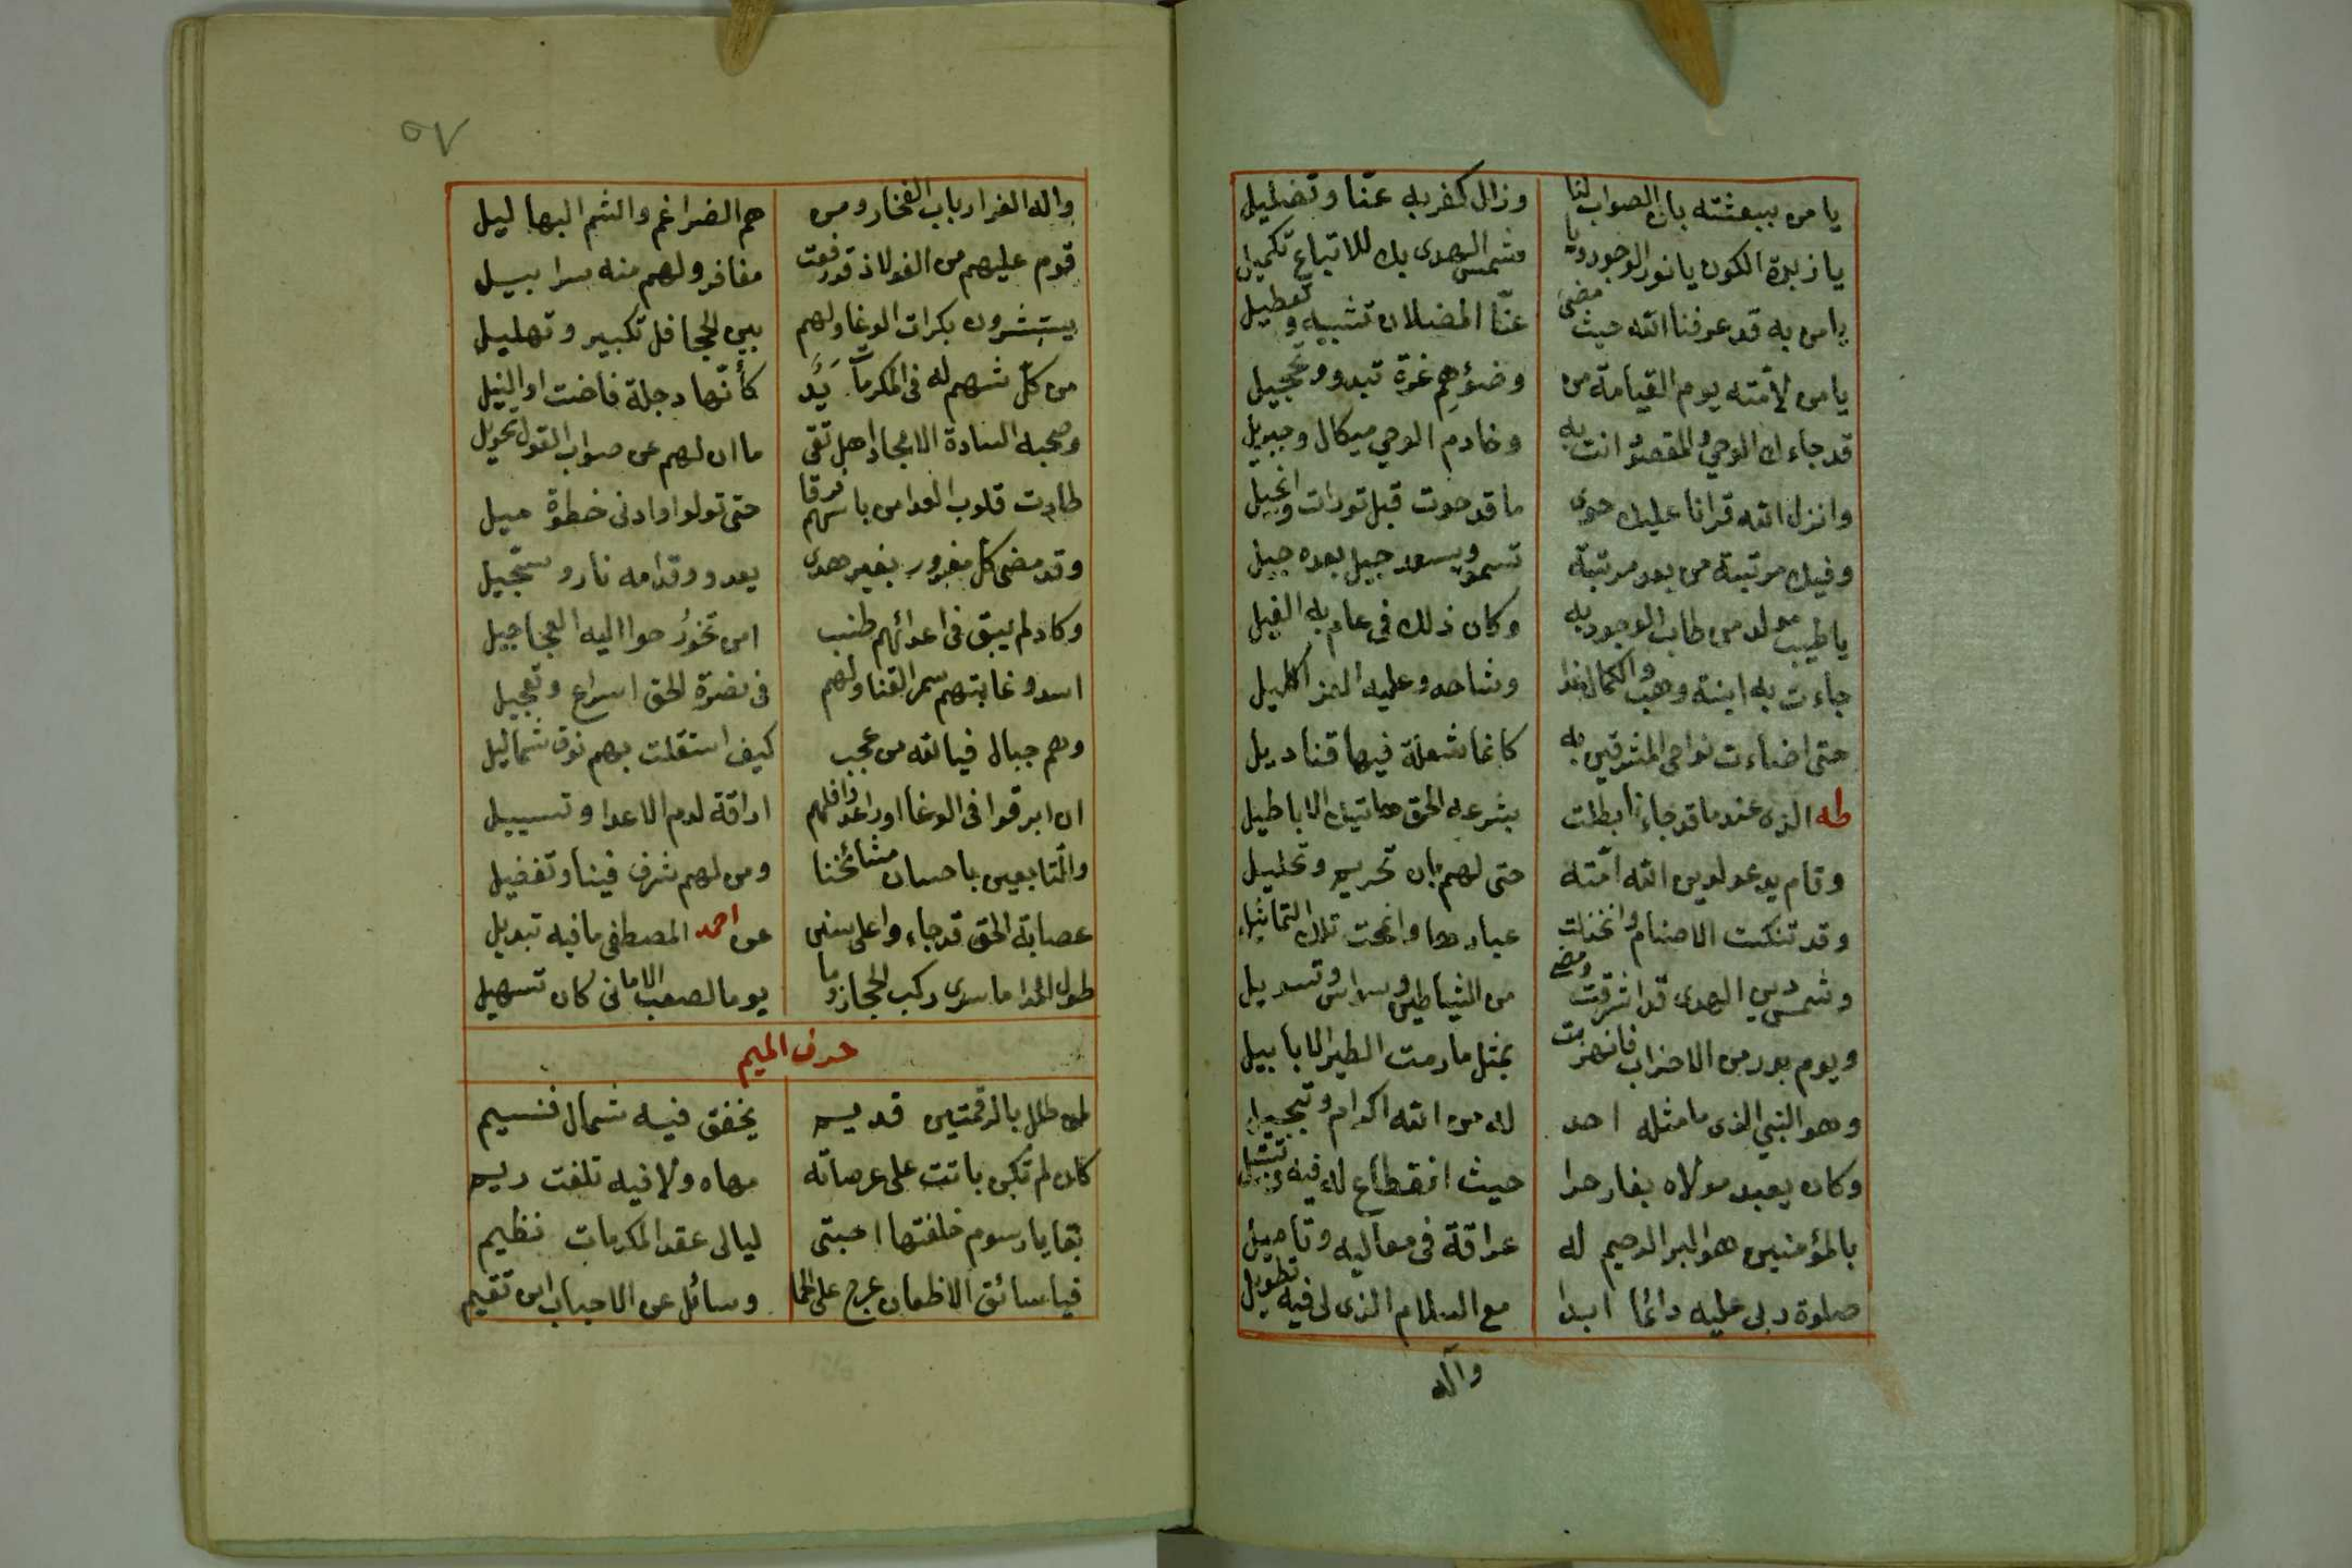 يا من ببعثته بان الصواب لنا وزال كفر به عنّا وتضليل
يا زبدة الكون يا نور الوجود ويا شمس الهدى بك للاتباع تكميل
يا من به قد عرفنا الله حيث مضى عنّا المضلان تشبيه وتعطيل
يا من لأمّته يوم القيامة من وضوئهم غرة تبدو وتحجيل
قد جاءك الوحي والمقصود انت به وخادم الوحي ميكال وجبريل
وانزل الله قرانا عليك حوى ما قد حوت قبل تورات وانجيل
وفيك مرتبة من بعد مرتبة تسمو ويسعد جيل بعده جيل
يا طيب مولد من طاب الوجود به وكان ذلك في عام به الفيل
جاءت به ابنة وهب والكمال غدا وشاحه وعليه العز اكليل
حتى اضاءت نواحي المشرقين به كانما شعلة فيها قناديل
طه الذي عندما قد جاءنا بطلت بشرعه الحق هاتيك الاباطيل
وقام يدعو لدين الله امّته حتى لهم بان تحريم وتحليل
وقد تنكست الاصنام وانخذلت عبادها وانمحت تلك التماثيل
وشمس دين الهدى قد اشرقت ومضى من الشياطين وسواس وتسويل
ويوم بدر من الاحزاب فانهزمت بمثل ما رمت الطير الابابيل
وهو النبي الذي ما مثله احد له من الله اكرام وتبجيل
وكان يعبد مولاه بغار حرا حيث انقطاع له فيه وتبتيل
بالمؤمنين هو البر الرحيم له عراقة في معاليه وتاصيل
صلوة ربى عليه دائما ابدا مع السلام الذي لى فيه تطويل
وآله
٥٧
واله الغر ارباب الفخار ومن هم الضراغم والشم البهاليل
قوم عليهم من الفولاذ قد رفعت مغافر ولهم منه سرابيل
يستبشرون بكرات الوغا ولهم بين الجحافل تكبير وتهليل
من كلّ شهم له فى المكرمات يَدٌ كأنّها دجلة فاضت او النيل
وصحبه السادة الامجاد اهل تقى ما ان لهم عن صواب القول تحويل
طارت قلوب العدا من باسهم فرقا حتى تولوا وادنى خطوة ميل
وقد مضى كل مغرور بغير هدى يعدو وقدامه نار وسجّيل
وكاد لم يبق فى اعدائهم طنب
اسد وغابتهم سمر القنا ولهم فى نصرة الحق اسراع وتعجيل
وهم جبال فيا لله من عجب كيف استقلت بهم نوق شماليل
ان ابرقوا فى الوغا او راعدوا فلهم اراقة لدم الاعدا وتسييل
والتابعين باحسان مشائخنا ومن لهم شرف فينا وتفضيل
عصابة الحق قد جاءوا على سنن عن احمد المصطفى ما فيه تبديل
طول المدا ما سرى ركب الحجاز وما يوما لصعب الامانى كان تسهيل
حرف الميم
لمن طلل بالرقمتين قديم يخفق فيه شمال فنسيم
كان لم تكن باتت على عرصاته مهاه ولا فيه تلفت ريم
بقايا رسوم خلفتها احبتى ليالى عقد المكرمات نظيم
فيا سائق الاظعان عرج على الحما وسائل عن الاحباب اين تقيم